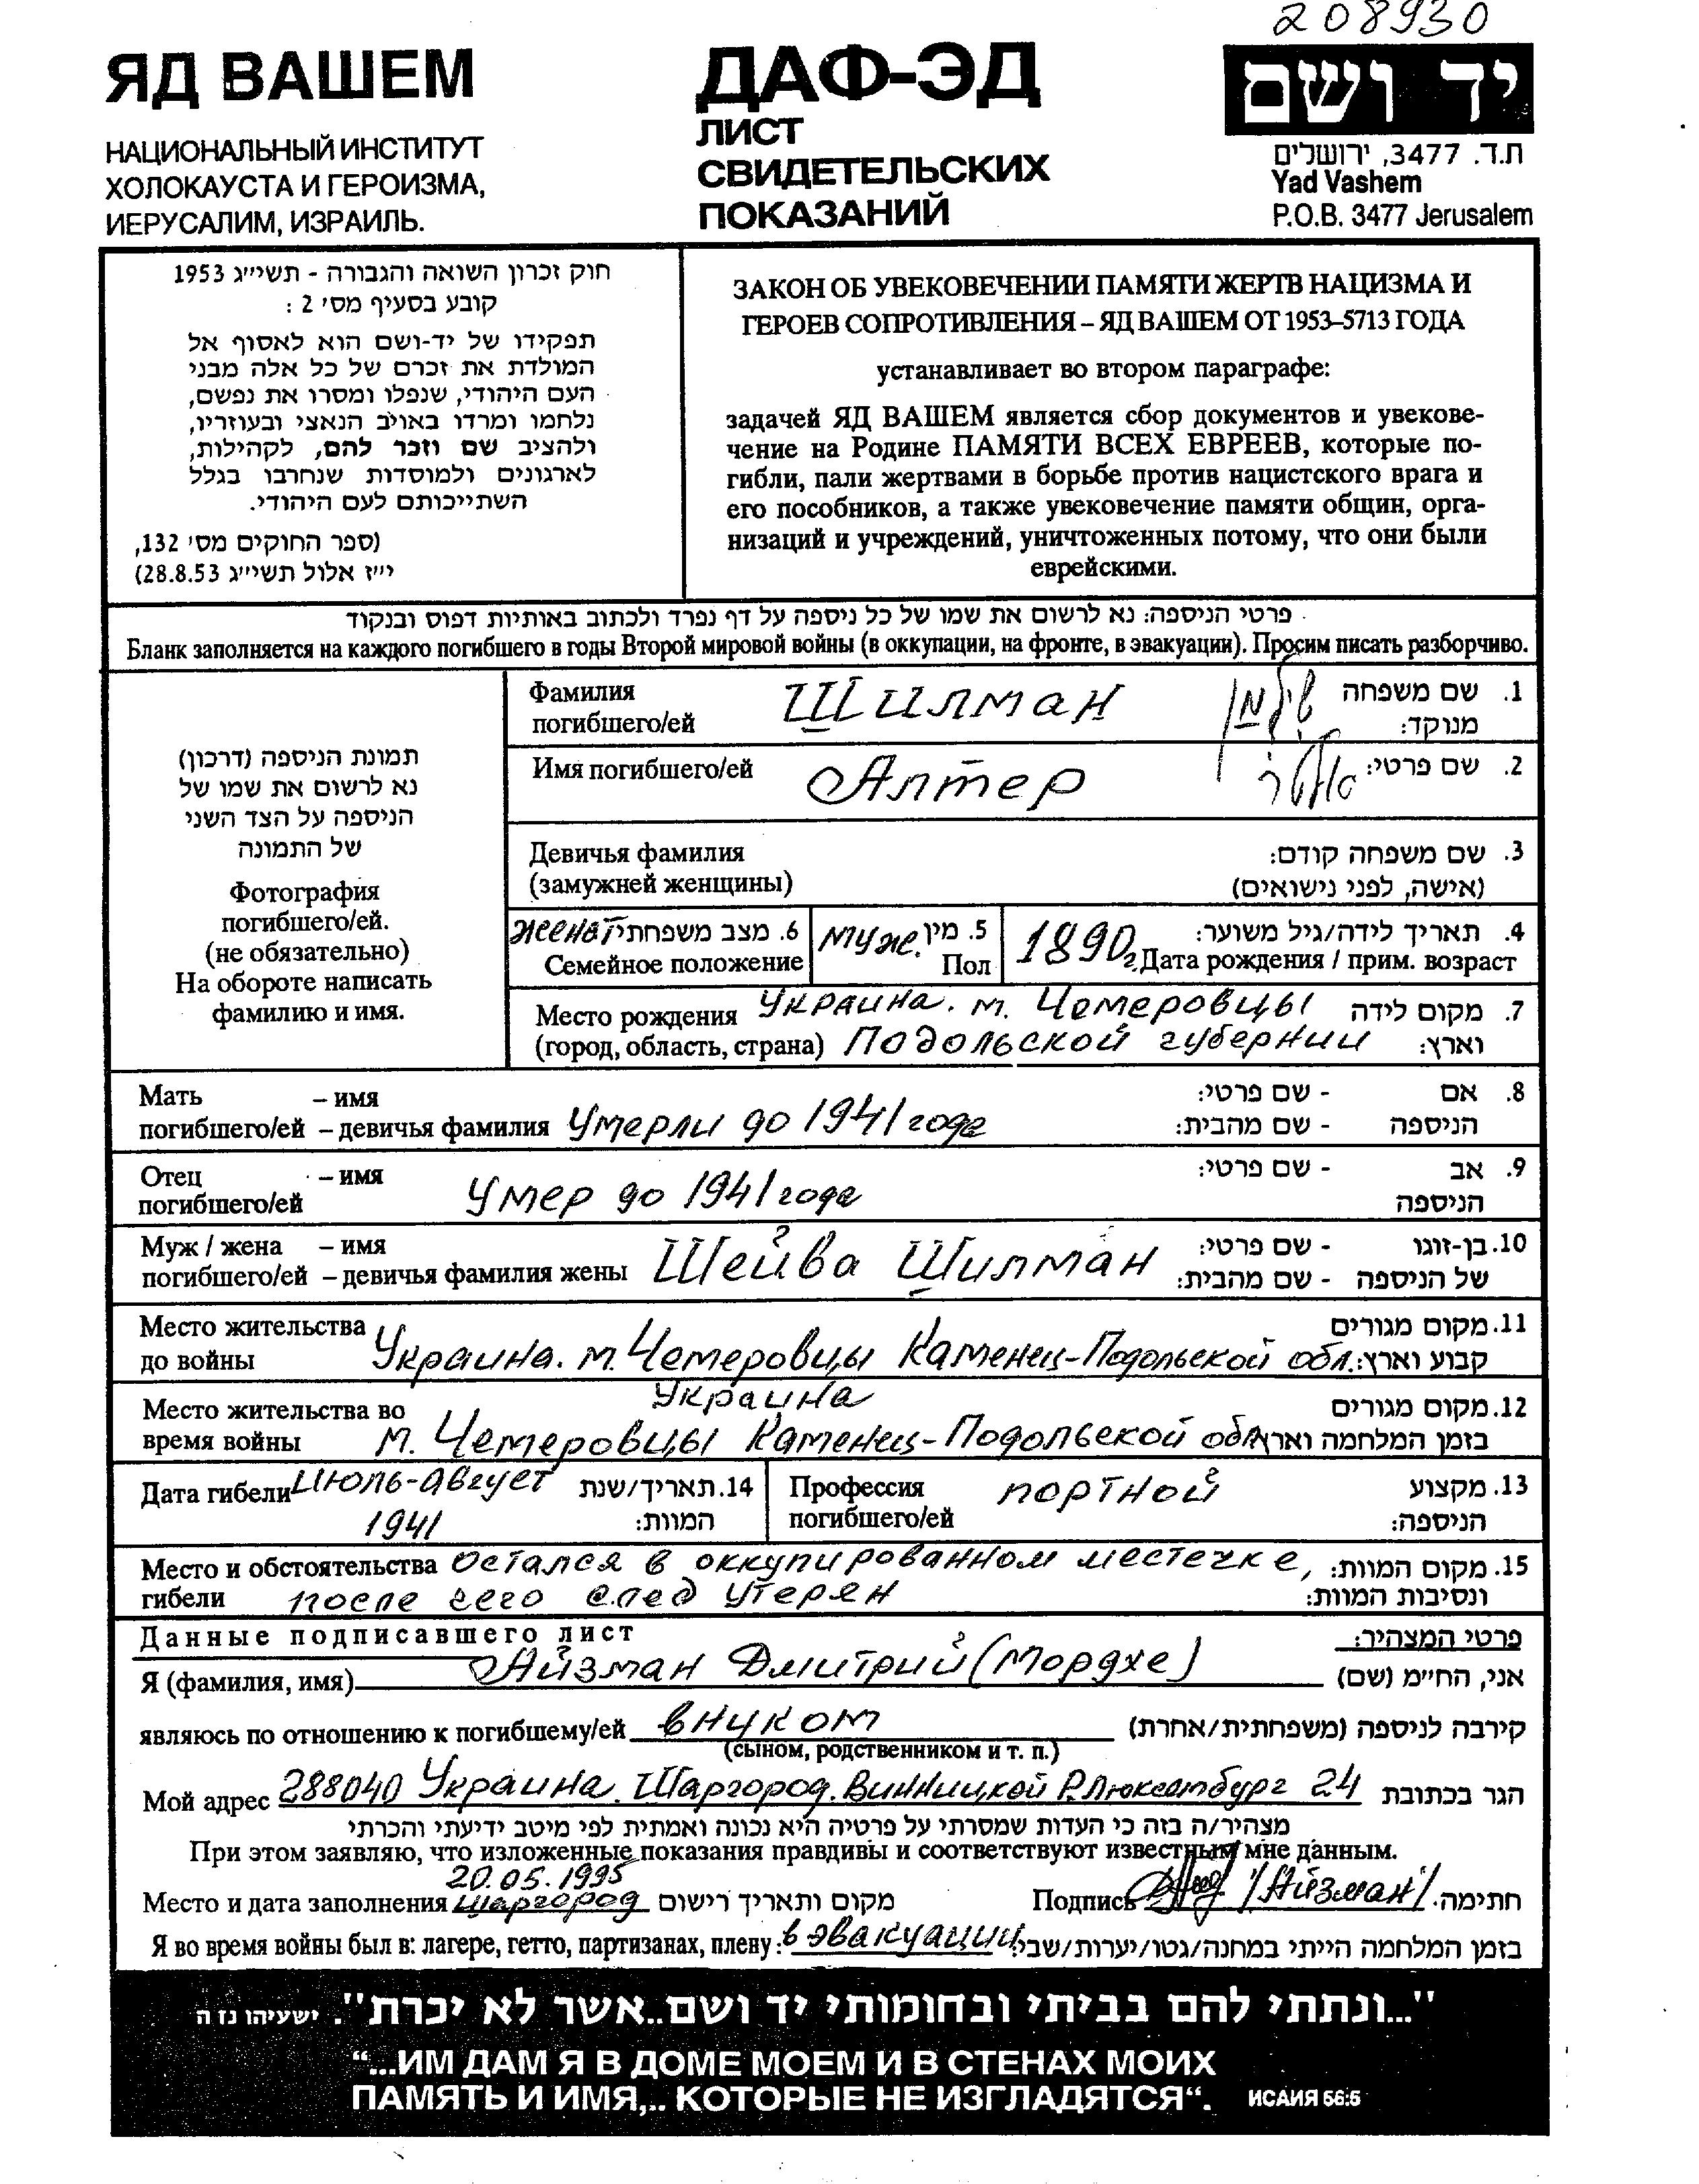 208930
ЯД ВАШЕМ
НАЦИОНАЛЬНЫЙ ИНСТИТУТ
ХОЛОКАУСТА И ГЕРОИЗМА,
ИЕРУСАЛИМ, ИЗРАИЛЬ.
ДАФ-ЭД
ЛИСТ
СВИДЕТЕЛЬСКИХ
ПОКАЗАНИЙ
יד ושם
ת.ד. 3477, ירושלים
Yad Vashem
P.O.B. 3477 Jerusalem
חוק זכרון השואה והגבורה - תשי״ג 1953
קובע בסעיף מס׳ 2 :
תפקידו של יד-ושם הוא לאסוף אל
המולדת את זכרם של כל אלה מבני
העם היהודי, שנפלו ומסרו את נפשם,
נלחמו ומרדו באויב הנאצי ובעוזריו,
ולהציב שם וזכר להם, לקהילות,
לארגונים ולמוסדות שנחרבו בגלל
השתייכותם לעם היהודי.
(ספר החוקים מס׳ 132,
י״ז אלול תשי״ג 28.8.53)
ЗАКОН ОБ УВЕКОВЕЧЕНИИ ПАМЯТИ ЖЕРТВ НАЦИЗМА И
ГЕРОЕВ СОПРОТИВЛЕНИЯ – ЯД ВАШЕМ ОТ 1953–5713 ГОДА
устанавливает во втором параграфе:
задачей ЯД ВАШЕМ является сбор документов и увекове-
чение на Родине ПАМЯТИ ВСЕХ ЕВРЕЕВ, которые по-
гибли, пали жертвами в борьбе против нацистского врага и
его пособников, а также увековечение памяти общин, орга-
низаций и учреждений, уничтоженных потому, что они были
еврейскими.
פרטי הניספה: נא לרשום את שמו של כל ניספה על דף נפרד ולכתוב באותיות דפוס ובנקוד
Бланк заполняется на каждого погибшего в годы Второй мировой войны (в оккупации, на фронте, в эвакуации). Просим писать разборчиво.
תמונת הניספה (דרכון)
נא לרשום את שמו של
הניספה על הצד השני
של התמונה
Фотография
погибшего/ей.
(не обязательно)
На обороте написать
фамилию и имя.
Фамилия Шилман שילמן 1. שם משפחה
погибшего/ей מנוקד:
Имя погибшего/ей Алтер אלטר 2. שם פרטי:
Девичья фамилия 3. שם משפחה קודם:
(замужней женщины) (אישה, לפני נישואים)
женат 6. מצב משפחתי муж. 5. מין 1890г. 4. תאריך לידה/גיל משוער:
Семейное положение Пол Дата рождения / прим. возраст
Место рождения Украина. м. Чемеровцы 7. מקום לידה
(город, область, страна) Подольской губернии וארץ:
Мать – имя - שם פרטי: 8. אם
погибшего/ей – девичья фамилия Умерли до 1941 года - שם מהבית: הניספה
Отец – имя - שם פרטי: 9. אב
погибшего/ей Умер до 1941 года הניספה
Муж / жена – имя Шейва Шилман - שם פרטי: 10. בן-זוגו
погибшего/ей – девичья фамилия жены - שם מהבית: של הניספה
Место жительства 11. מקום מגורים
до войны Украина. м. Чемеровцы Каменец-Подольской обл. קבוע וארץ:
Место жительства во Украина 12. מקום מגורים
время войны м. Чемеровцы Каменец-Подольской обл בזמן המלחמה וארץ
Дата гибели Июль-август 14. תאריך/שנת
1941 המוות:
Профессия портной 13. מקצוע
погибшего/ей הניספה:
Место и обстоятельства Остался в оккупированном местечке, 15. מקום המוות:
гибели после чего след утерян ונסיבות המוות:
Данные подписавшего лист פרטי המצהיר:
Я (фамилия, имя) Айзман Дмитрий (Мордхе) אני, הח״מ (שם)
являюсь по отношению к погибшему/ей внуком קירבה לניספה (משפחתית/אחרת)
(сыном, родственником и т. п.)
Мой адрес 288040 Украина. Шаргород. Винницкой Р. Люксембург 24 הגר בכתובת
מצהיר/ה בזה כי העדות שמסרתי על פרטיה היא נכונה ואמתית לפי מיטב ידיעתי והכרתי
При этом заявляю, что изложенные показания правдивы и соответствуют известным мне данным.
20.05.1995
Место и дата заполнения Шаргород מקום ותאריך רישום Подпись /Айзман/ חתימה.
Я во время войны был в: лагере, гетто, партизанах, плену: в эвакуации בזמן המלחמה הייתי במחנה/גטו/יערות/שבי:
"...ונתתי להם בביתי ובחומותי יד ושם..אשר לא יכרת". ישעיהו נז ה
“...ИМ ДАМ Я В ДОМЕ МОЕМ И В СТЕНАХ МОИХ
ПАМЯТЬ И ИМЯ,.. КОТОРЫЕ НЕ ИЗГЛАДЯТСЯ“. ИСАИЯ 56:5